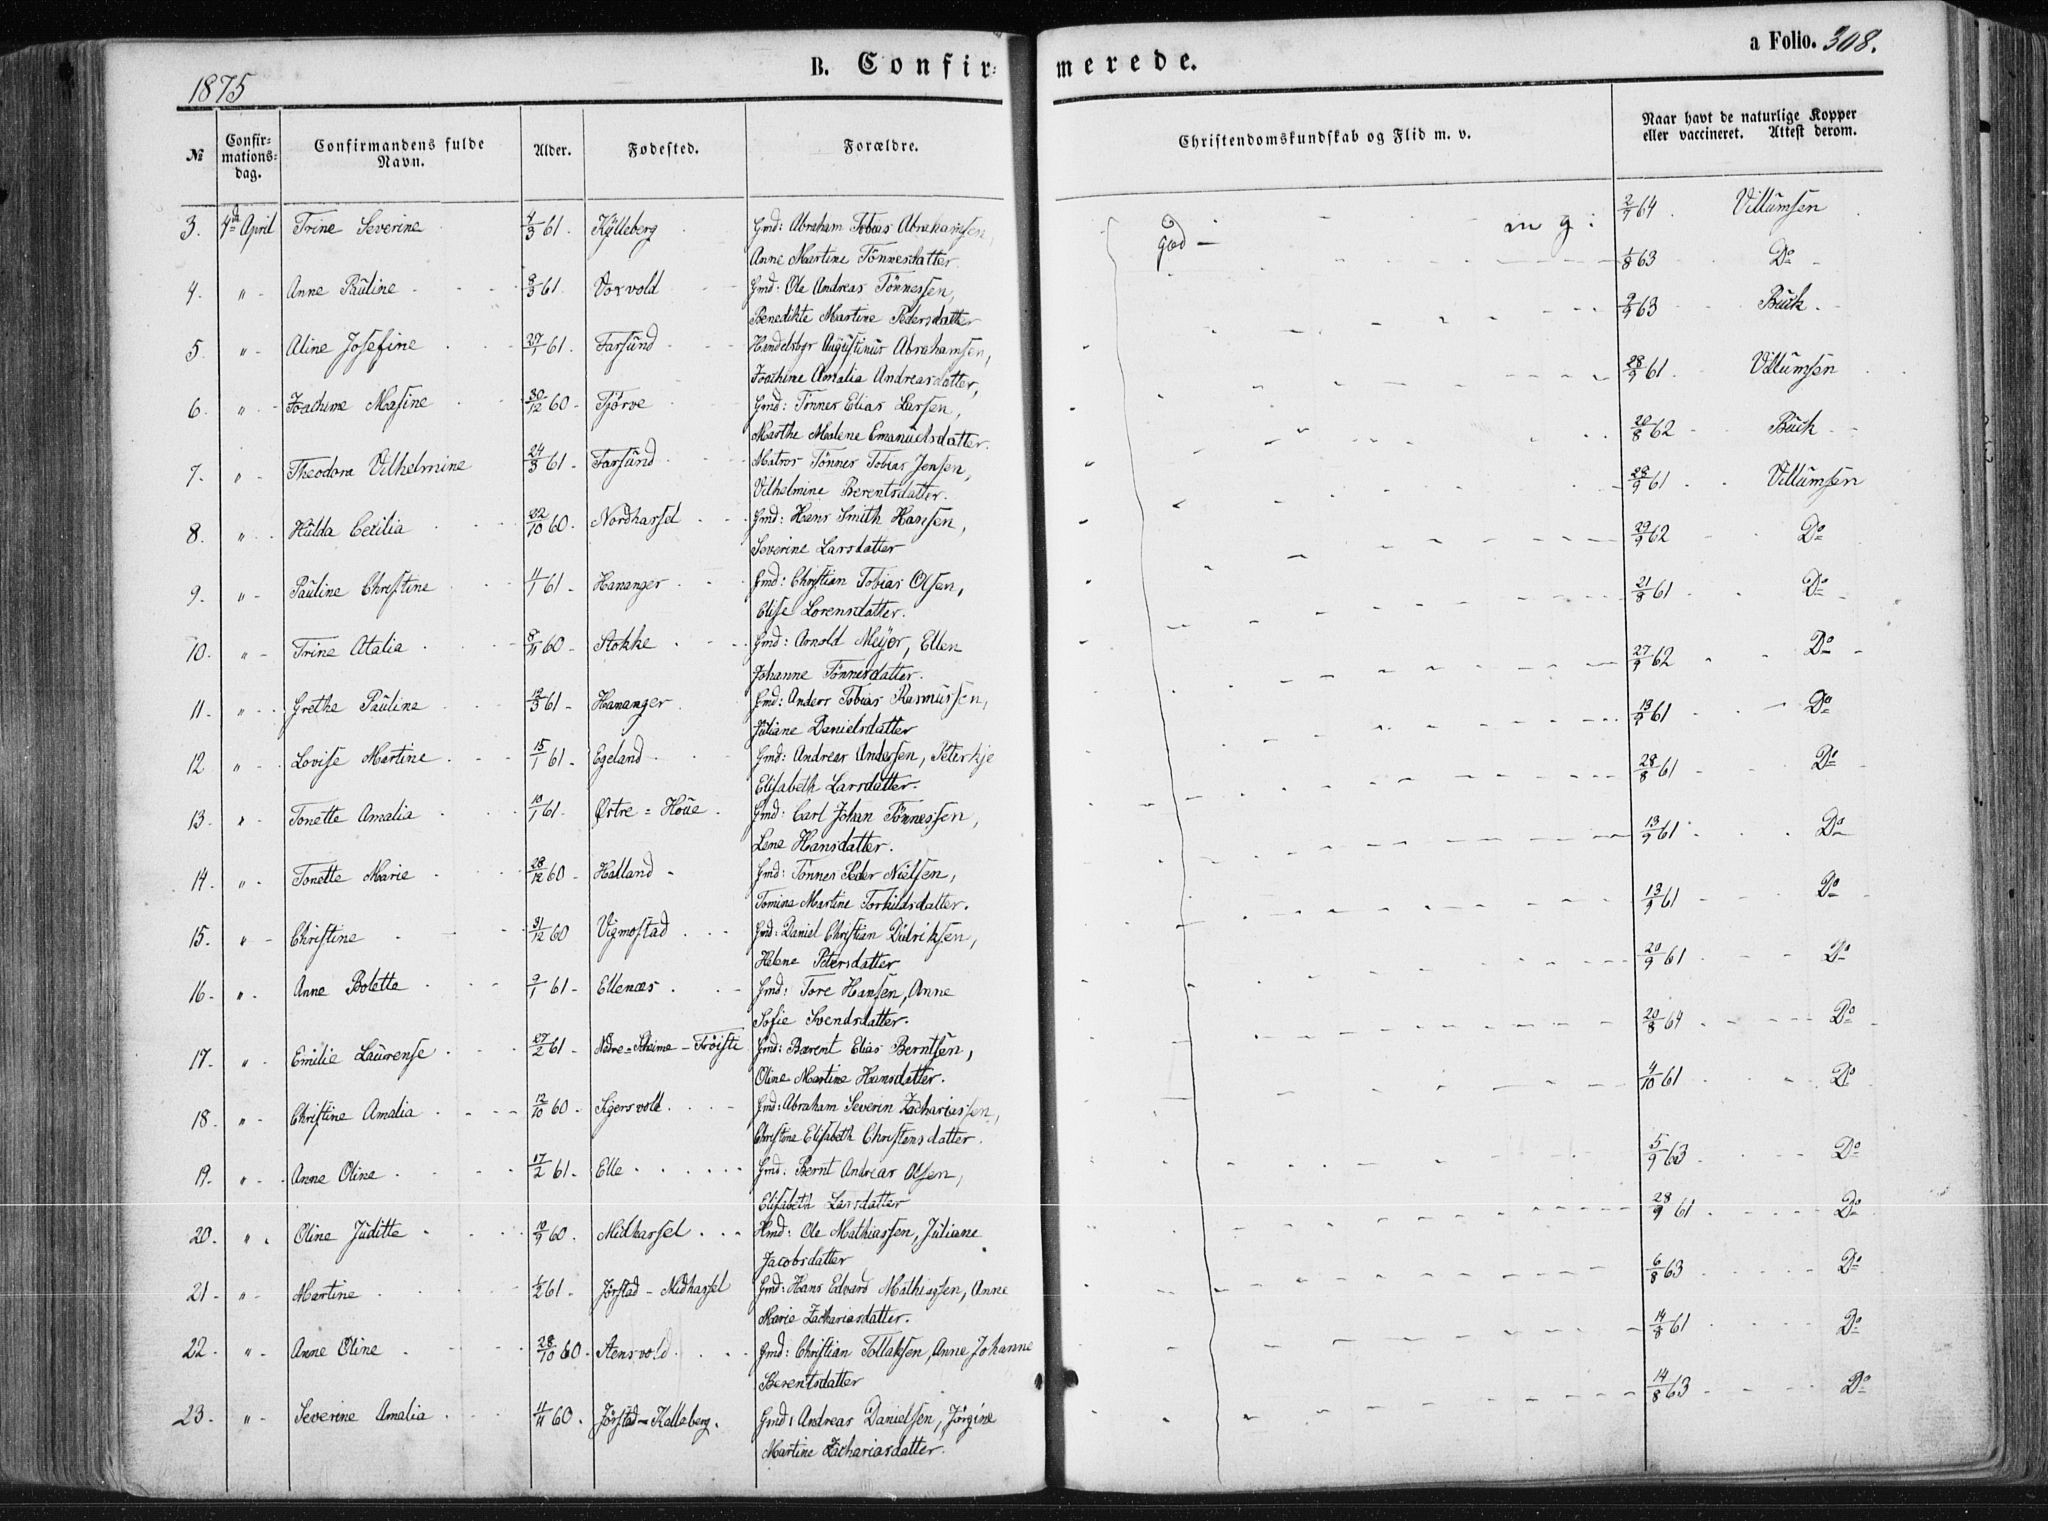 1875
B. Confir- merede.
a Folio. 308.
№ Confirmations-dag. Confirmandens fulde Navn. Alder. Fødested. Forældre. Christendomskundskab og Flid m. v. Naar havt de naturlige Kopper eller vaccineret. Attest derom.
3. 4de April Trine Severine 4/3 61. Kylleberg Gmd: Abraham Tobias Abrahamsen, god - - - m g: 2/9 64. Villumsen
Anne Martine Tönnesdatter.
4. " - Anne Pauline 61. Vorvold Gmd: Ole Andreas Tönnessen, 1/8 63 Do
Benedikte Martine Pedersdatter
5. " - Aline Josefine 27/1 61. Farsund Handelsbgr Augustinus Abrahamsen, 63 Buch
Joachime Amalia Andreasdatter,
6. " - Joachime Masine 30/12 60 Tjørve Gmd: Tönnes Elias Larsen, 28/9 61. Villumsen
Marthe Malene Emanuelsdatter.
7. " - Theodora Vilhelmine 24/3 61. Farsund Matros Tönnes Tobias Jensen, 20/8 62 Buch
Vilhelmine Berentsdatter.
8. " Hulda Cecilia 22/10 60. Nordhassel Gmd: Hans Smith Hansen, 61 Villumsen
Severine Larsdatter
9. " - Pauline Christine 61. Hananger Gmd: Christian Tobias Olsen, 29/9 62 Do
Elise Lorensdatter.
10. " - Trine Atalia 8/11 60. Stokke Gmd: Arnold Meyer, Ellen 21/8 61 Do
Johanne Tönnesdatter.
11. " Grethe Pauline 61 - Hananger Gmd: Anders Tobias Rasmussen, 27/9 62 Do
Juliane Danielsdatter
12 " Lovise Martine 15/1 61. Egeland Gmd: Andreas Andersen, Peterkje 13/9 61 Do
Elisabeth Larsdatter.
13. " Tonette Amalia 10/1 61. Østre = Houe Gmd: Carl Johan Tönnessen, 28/8 61 Do
Lene Hansdatter.
14. " - Tonette Marie 28/12 60 Halland Gmd: Tönnes Peder Nielsen, 13/9 61 Do
Tomine Martine Torkildsdatter.
15. " - Christine 31/12 60 Vigmostad Gmd: Daniel Christian Didriksen, 13/9 61 Do
Helene Petersdatter
16. " Anne Bolette 9/1 61 - Ellenæs Gmd: Tore Hansen, Anne 20/9 61 Do
Sofie Svendsdatter.
17. " Emilie Laurense 27/2 61. Nedre = Skeime - Tröiste Gmd: Bærent Elias Berntsen, 20/8 64 Do
Oline Martine Hansdatter.
18. " - Christine Amalia 12/10 60. Sigersvold Gmd: Abraham Severin Zachariassen, 4/10 61 Do
Christine Elisabeth Christensdatter.
19. " Anne Oline 17/2 61. Elle Gmd: Bernt Andreas Olsen, 5/9 63 Do
Elisabeth Larsdatter
20. " Oline Juditte 10/9 60. Midhassel Hmd: Ole Mathiassen, Juliane 28/9 61 Do
Jacobsdatter
21 " - Martine 61. Jørstad - Midhassel Gmd: Hans Edvard Mathiassen, Anne 6/8 63 Do
Marie Zachariasdatter.
22. " - Anne Oline 28/10 60. Stensvold Gmd: Christian Tollaksen, Anne Johanne 14/8 61 Do
Berentsdatter
23. " - Severine Amalia 4/11 60. Jörstad - Kalleberg. Gmd: Andreas Danielsen, Jörgine 14/8 63 Do
Martine Zachariasdatter.